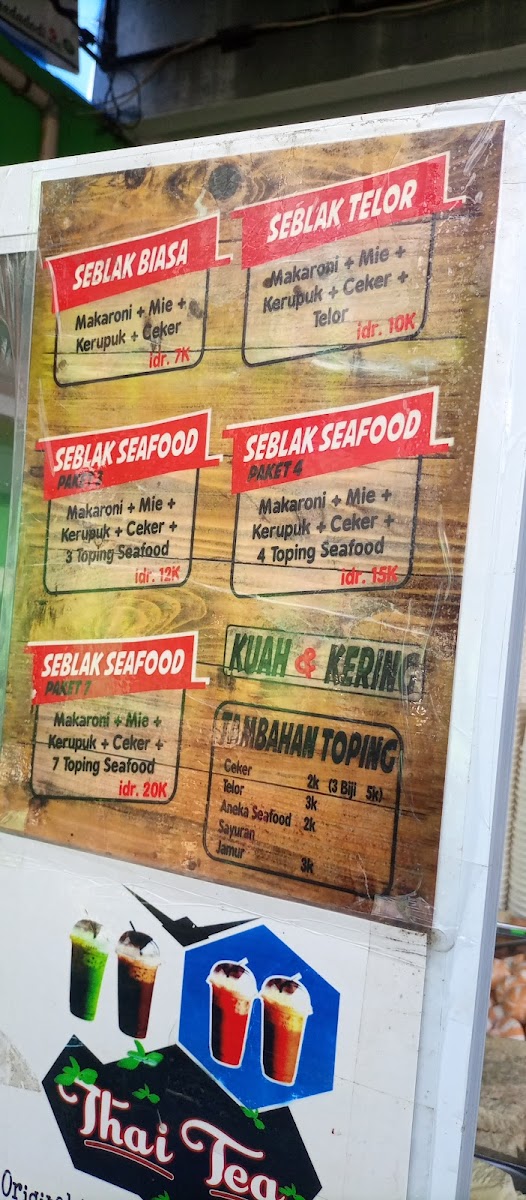 SEBLAK BIASA
Makaroni + Mie +
Kerupuk + Ceker
idr. 7K
SEBLAK TELOR
Makaroni + Mie +
Kerupuk + Ceker +
Telor
idr. 10K
SEBLAK SEAFOOD
PAKET 3
Makaroni + Mie +
Kerupuk + Ceker +
3 Toping Seafood
idr. 12K
SEBLAK SEAFOOD
PAKET 4
Makaroni + Mie +
Kerupuk + Ceker +
4 Toping Seafood
idr. 15K
SEBLAK SEAFOOD
PAKET 7
Makaroni + Mie +
Kerupuk + Ceker +
7 Toping Seafood
idr. 20K
KUAH & KERING
TAMBAHAN TOPING
Ceker 2k (3 Biji 5k)
Telor 3k
Aneka Seafood 2k
Sayuran
Jamur 3k
Thai Tea